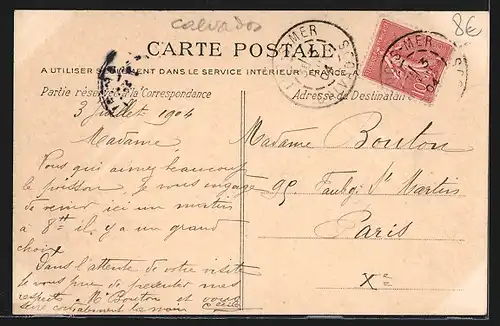 calvados
8€
CARTE POSTALE
A UTILISER SEULEMENT DANS LE SERVICE INTÉRIEUR (FRANCE, A
Partie réservée à la Correspondance
Adresse du Destinataire
3 Juillet 1904
Madame,
Vous qui aimez beaucoup
le poisson, je vous engage
de venir ici un matin
à 8h il y a un grand
choix
Dans l'attente de votre visite
je vous prie de présenter mes
respects à Mr Bouton et vous
serre cordialement la main
Madame Bouton
95 Faubg St Martin
Paris
Xe